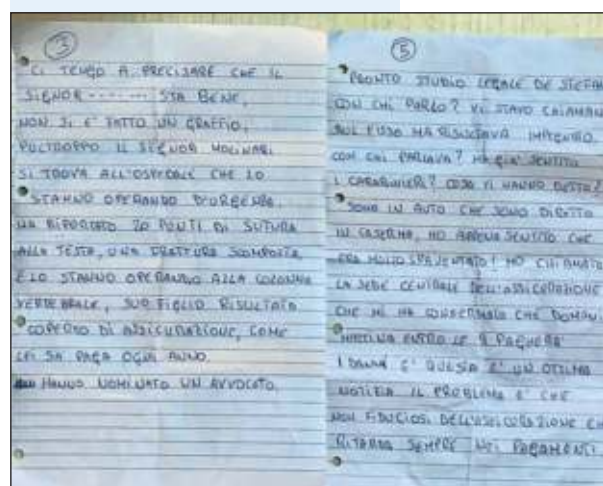 3
CI TENGO A PRECISARE CHE IL
SIGNOR ...... STA BENE,
NON SI E' FATTO UN GRAFFIO,
PULTROPPO IL SIGNOR MOLINARI
SI TROVA ALL'OSPEDALE CHE LO
STANNO OPERANDO D'URGENZA.
HA RIPORTATO 20 PUNTI DI SUTURA
ALLA TESTA, UNA FRATTURA SCOMPOSTA
E LO STANNO OPERANDO ALLA COLONNA
VERTEBRALE, SUO FIGLIO RISULTATA
COPERTO DI ASSICURAZIONE, COME
LEI SA PAGA OGNI ANNO.
HANNO NOMINATO UN AVVOCATO.
5
PRONTO STUDIO LEGALE DE STEFAN
CON CHI PARLO? VI STAVO CHIAMAN
SUL FISSO MA RISULTAVA
CON CHI PARLAVA? HA GIA' SENTITO
I CARABINIERI? COSA VI HANNO DETTO?
SONO IN AUTO CHE SONO DIRETTO
IN CASERMA, HO APPENA SENTITO CHE
ERA MOLTO SPAVENTATO! HO CHIAMATO
LA SEDE CENTRALE DELL'ASSICURAZIONE
CHE MI HA CONFERMATO CHE DOMANI
MATTINA ENTRO LE 9 PAGHERA'
I DANNI E' QUESTA E' UN OTTIMA
NOTIZIA IL PROBLEMA E' CHE
NON FIDUCIOSI DELL'ASSICURAZIONE CH
RITARDA SEMPRE NEI PAGAMENTI